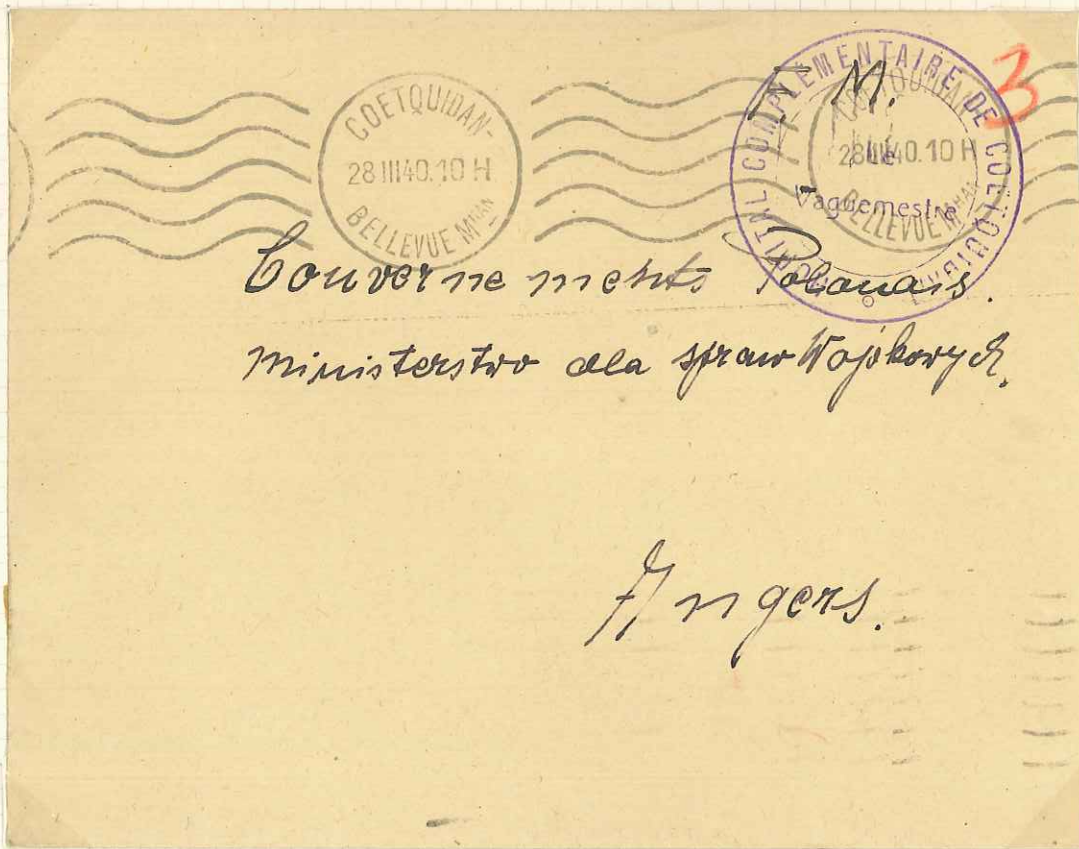 COETQUIDAN-
28 III 40.10 H
BELLEVUE MBIHAN
HOPITAL COMPLEMENTAIRE DE COETQUIDAN
COETQUIDAN-
28 III 40.10 H
BELLEVUE MBIHAN
Le
Vaguemestre
3
Gouvernements Polonais.
Ministerstwo dla spraw Wojskowych.
Angers.